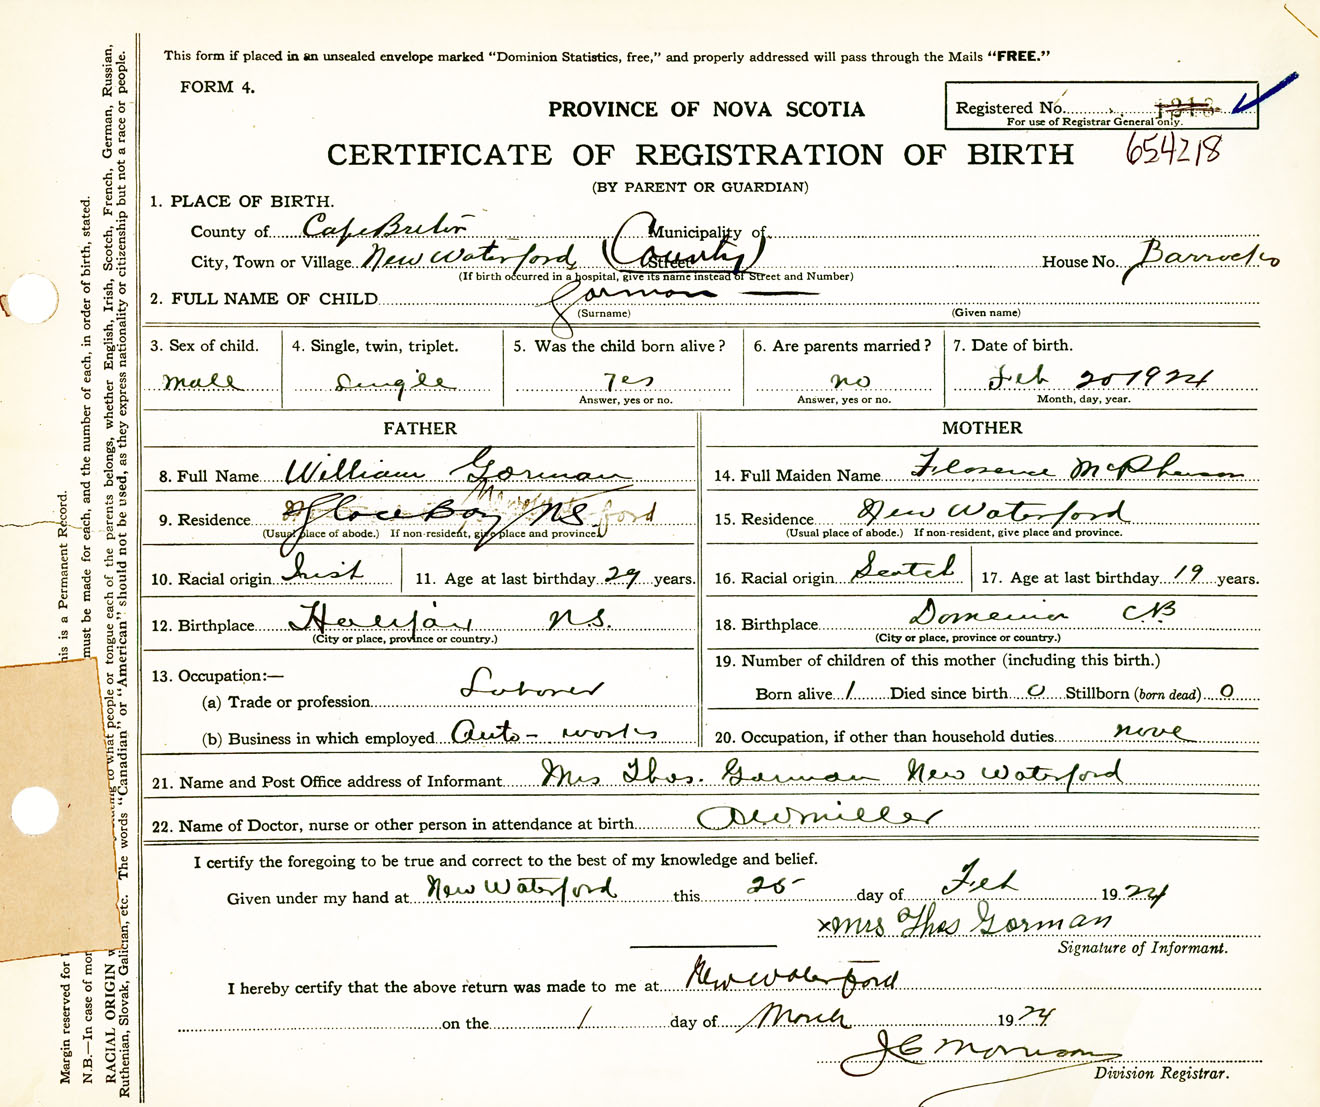 This form if placed in an unsealed envelope marked "Dominion Statistics, free," and properly addressed will pass through the Mails "FREE."
FORM 4.
PROVINCE OF NOVA SCOTIA
Registered No. 1213
For use of Registrar General only.
654218
CERTIFICATE OF REGISTRATION OF BIRTH
(BY PARENT OR GUARDIAN)
1. PLACE OF BIRTH.
County of Cape Breton Municipality of
City, Town or Village New Waterford (County) Street House No.
(If birth occurred in a hospital, give its name instead of Street and Number)
2. FULL NAME OF CHILD Gorman —
(Surname) (Given name)
3. Sex of child. 4. Single, twin, triplet. 5. Was the child born alive? 6. Are parents married? 7. Date of birth.
Male Single Yes no Feb 20 1924
Answer, yes or no. Answer, yes or no. Month, day, year.
FATHER MOTHER
8. Full Name William Gorman 14. Full Maiden Name Florence McPherson
9. Residence Glace Bay NS 15. Residence New Waterford
(Usual place of abode.) If non-resident, give place and province. (Usual place of abode.) If non-resident, give place and province.
10. Racial origin Irish 11. Age at last birthday 29 years. 16. Racial origin Scotch 17. Age at last birthday 19 years.
12. Birthplace Halifax N.S. 18. Birthplace Dominion CB
(City or place, province or country.) (City or place, province or country.)
13. Occupation:— 19. Number of children of this mother (including this birth.)
(a) Trade or profession Laborer Born alive 1 Died since birth 0 Stillborn (born dead) 0
(b) Business in which employed Auto - works 20. Occupation, if other than household duties none
21. Name and Post Office address of Informant Mrs Thos. Gorman New Waterford
22. Name of Doctor, nurse or other person in attendance at birth Miller
I certify the foregoing to be true and correct to the best of my knowledge and belief.
Given under my hand at New Waterford this 25 day of Feb 1924
x Mrs Thos Gorman
Signature of Informant.
I hereby certify that the above return was made to me at New Waterford
on the 1 day of March 1924
J C Morrison
Division Registrar.
Margin reserved for
his is a Permanent Record.
N.B.—In case of mor
must be made for each, and the number of each, in order of birth, stated.
RACIAL ORIGIN
to what people or tongue each of the parents belongs, whether English, Irish, Scotch, French, German, Russian,
Ruthenian, Slovak, Galician, etc. The words "Canadian" or "American" should not be used, as they express nationality or citizenship but not a race or people.